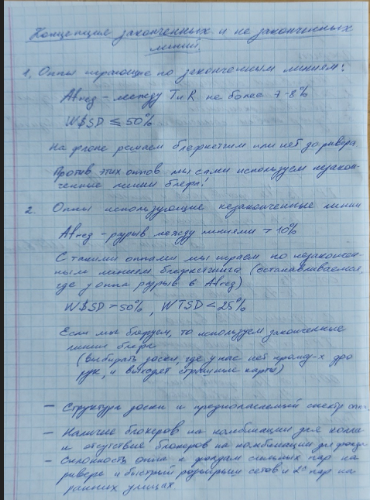 Концепция законченных и не законченных
линий.
1. Оппы играющие по законченным линиям:
AFreq - между T и R не более 7-8%
W$SD ≤ 50%
На флопе решаем блефкетчим или нет до ривера
Против этих оппов мы сами используем незакон-
ченные линии блефа!
2. Оппы использующие незаконченные линии
AFreq - разрыв между линиями + 10%
С такими оппами мы играем по незакончен-
ным линиям блефкетчинга (останавливаемся
где у оппа разрыв в AFreq)
W$SD > 50%, WTSD < 25%
Если мы блефуем, то используем законченные
линии блефа
(выбирать доски, где у нас нет
рук, и выходят страшные карты)
- Структура доски и предполагаемый спектр
- Наличие блокеров на комбинации для колла
и отсутствие блокеров на комбинации для
- Склонность оппа к докиду сильных пар на
ривере и быстрый розыгрыш сетов и 2х пар на
ранних улицах.